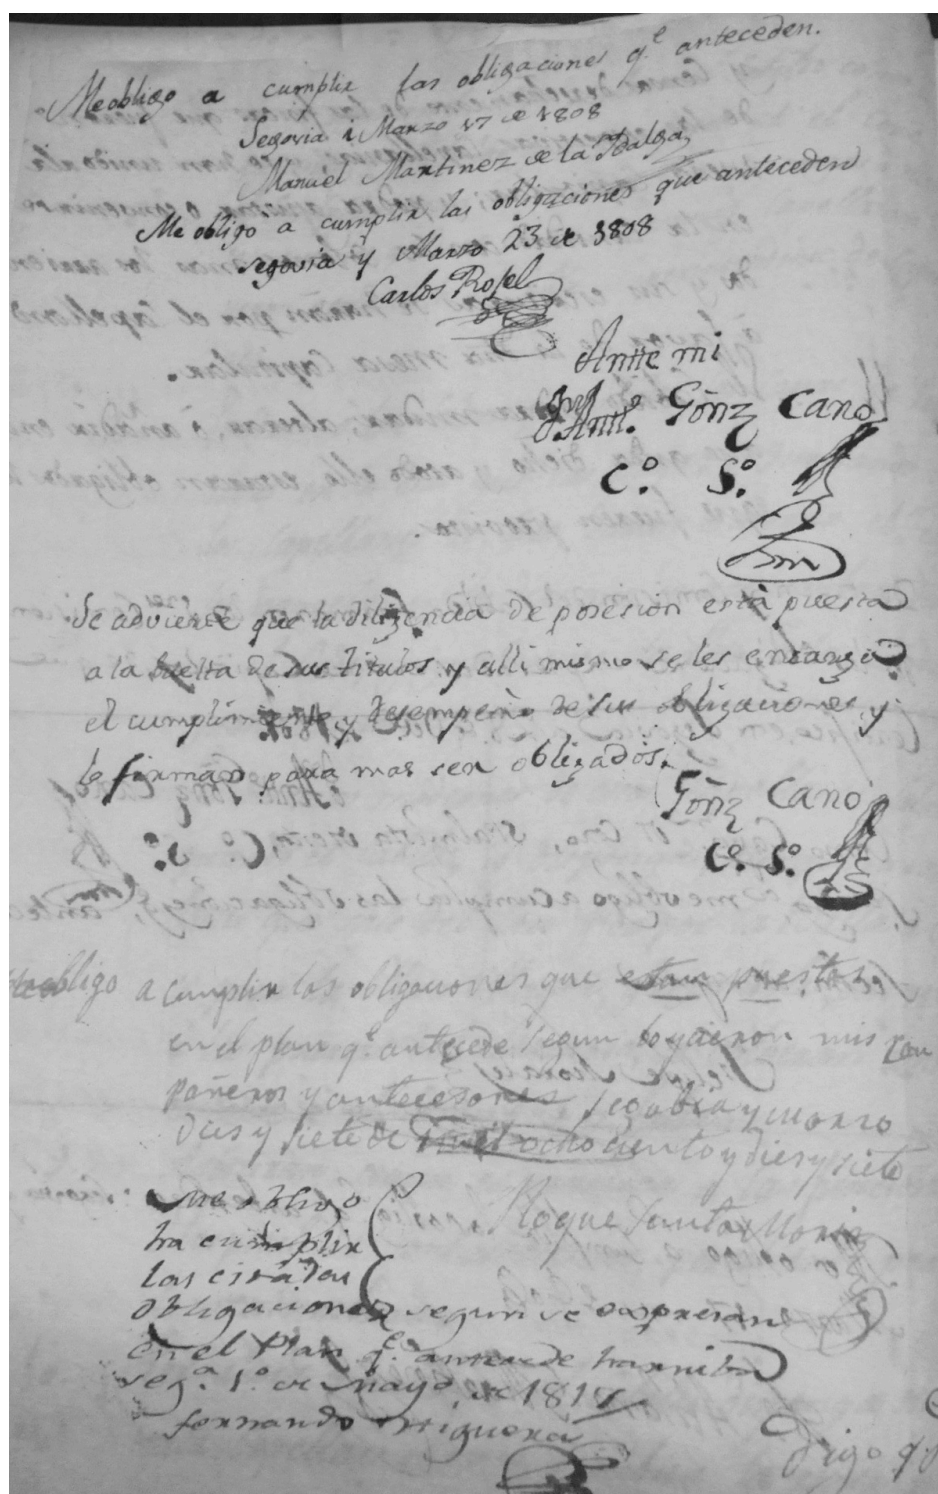 Me obligo a cumplir las obligaciones q.e anteceden.
Segovia i Marzo 17 de 1808
Manuel Martinez de la
Me obligo a cumplir las obligaciones que anteceden
Segovia y Marzo 23 de 1808
Carlos Rosel
Antte mi
Antt.o Gonz Cano
C.o S.o
Se advierte que la diligencia de posesion està puesta
a la buelta de sus titulos y alli mismo se les encarga
el cumplimiento y desempeño de sus obligaciones, y
lo firman para mas ser obligados.
Gonz Cano
C.o S.o
obligo a cumplir las obligaciones que estan puestas
en el plan q.e antecede segun lo ycieron mis Com
pañeros y antecesores Segobia y marzo
Dies y siete de mil ochociento y dies y siete
Roque Santa Maria
Me obligo
ha cumplir
las citadas
obligaciones segun se espresan
en el Plan q.e antecede harriba
Seg.a 1.o de Mayo de 1817
fernando
Digo q.e